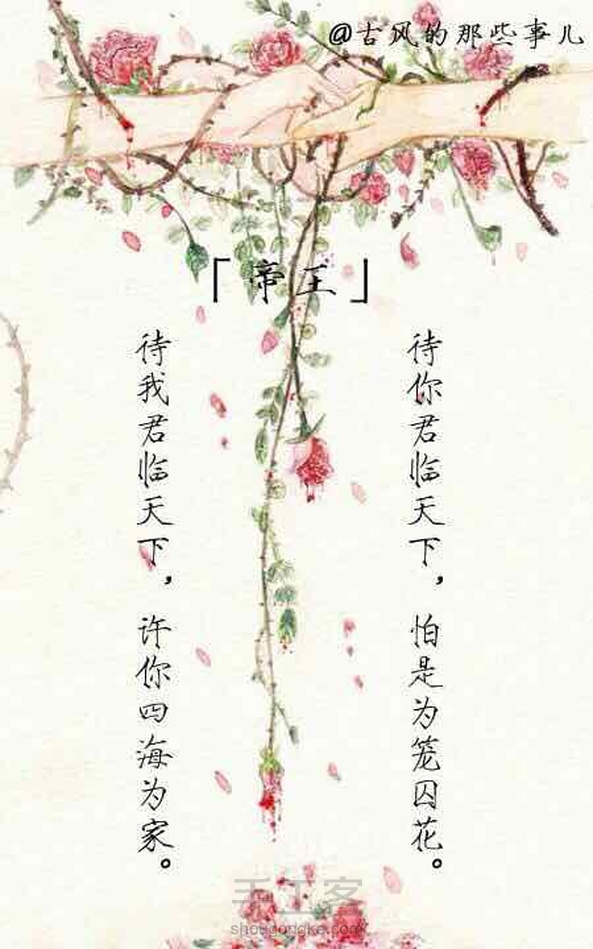 @古风的那些事儿
「帝王」
待我君临天下，许你四海为家。
待你君临天下，怕是为笼囚花。
手工客
shougongke.com